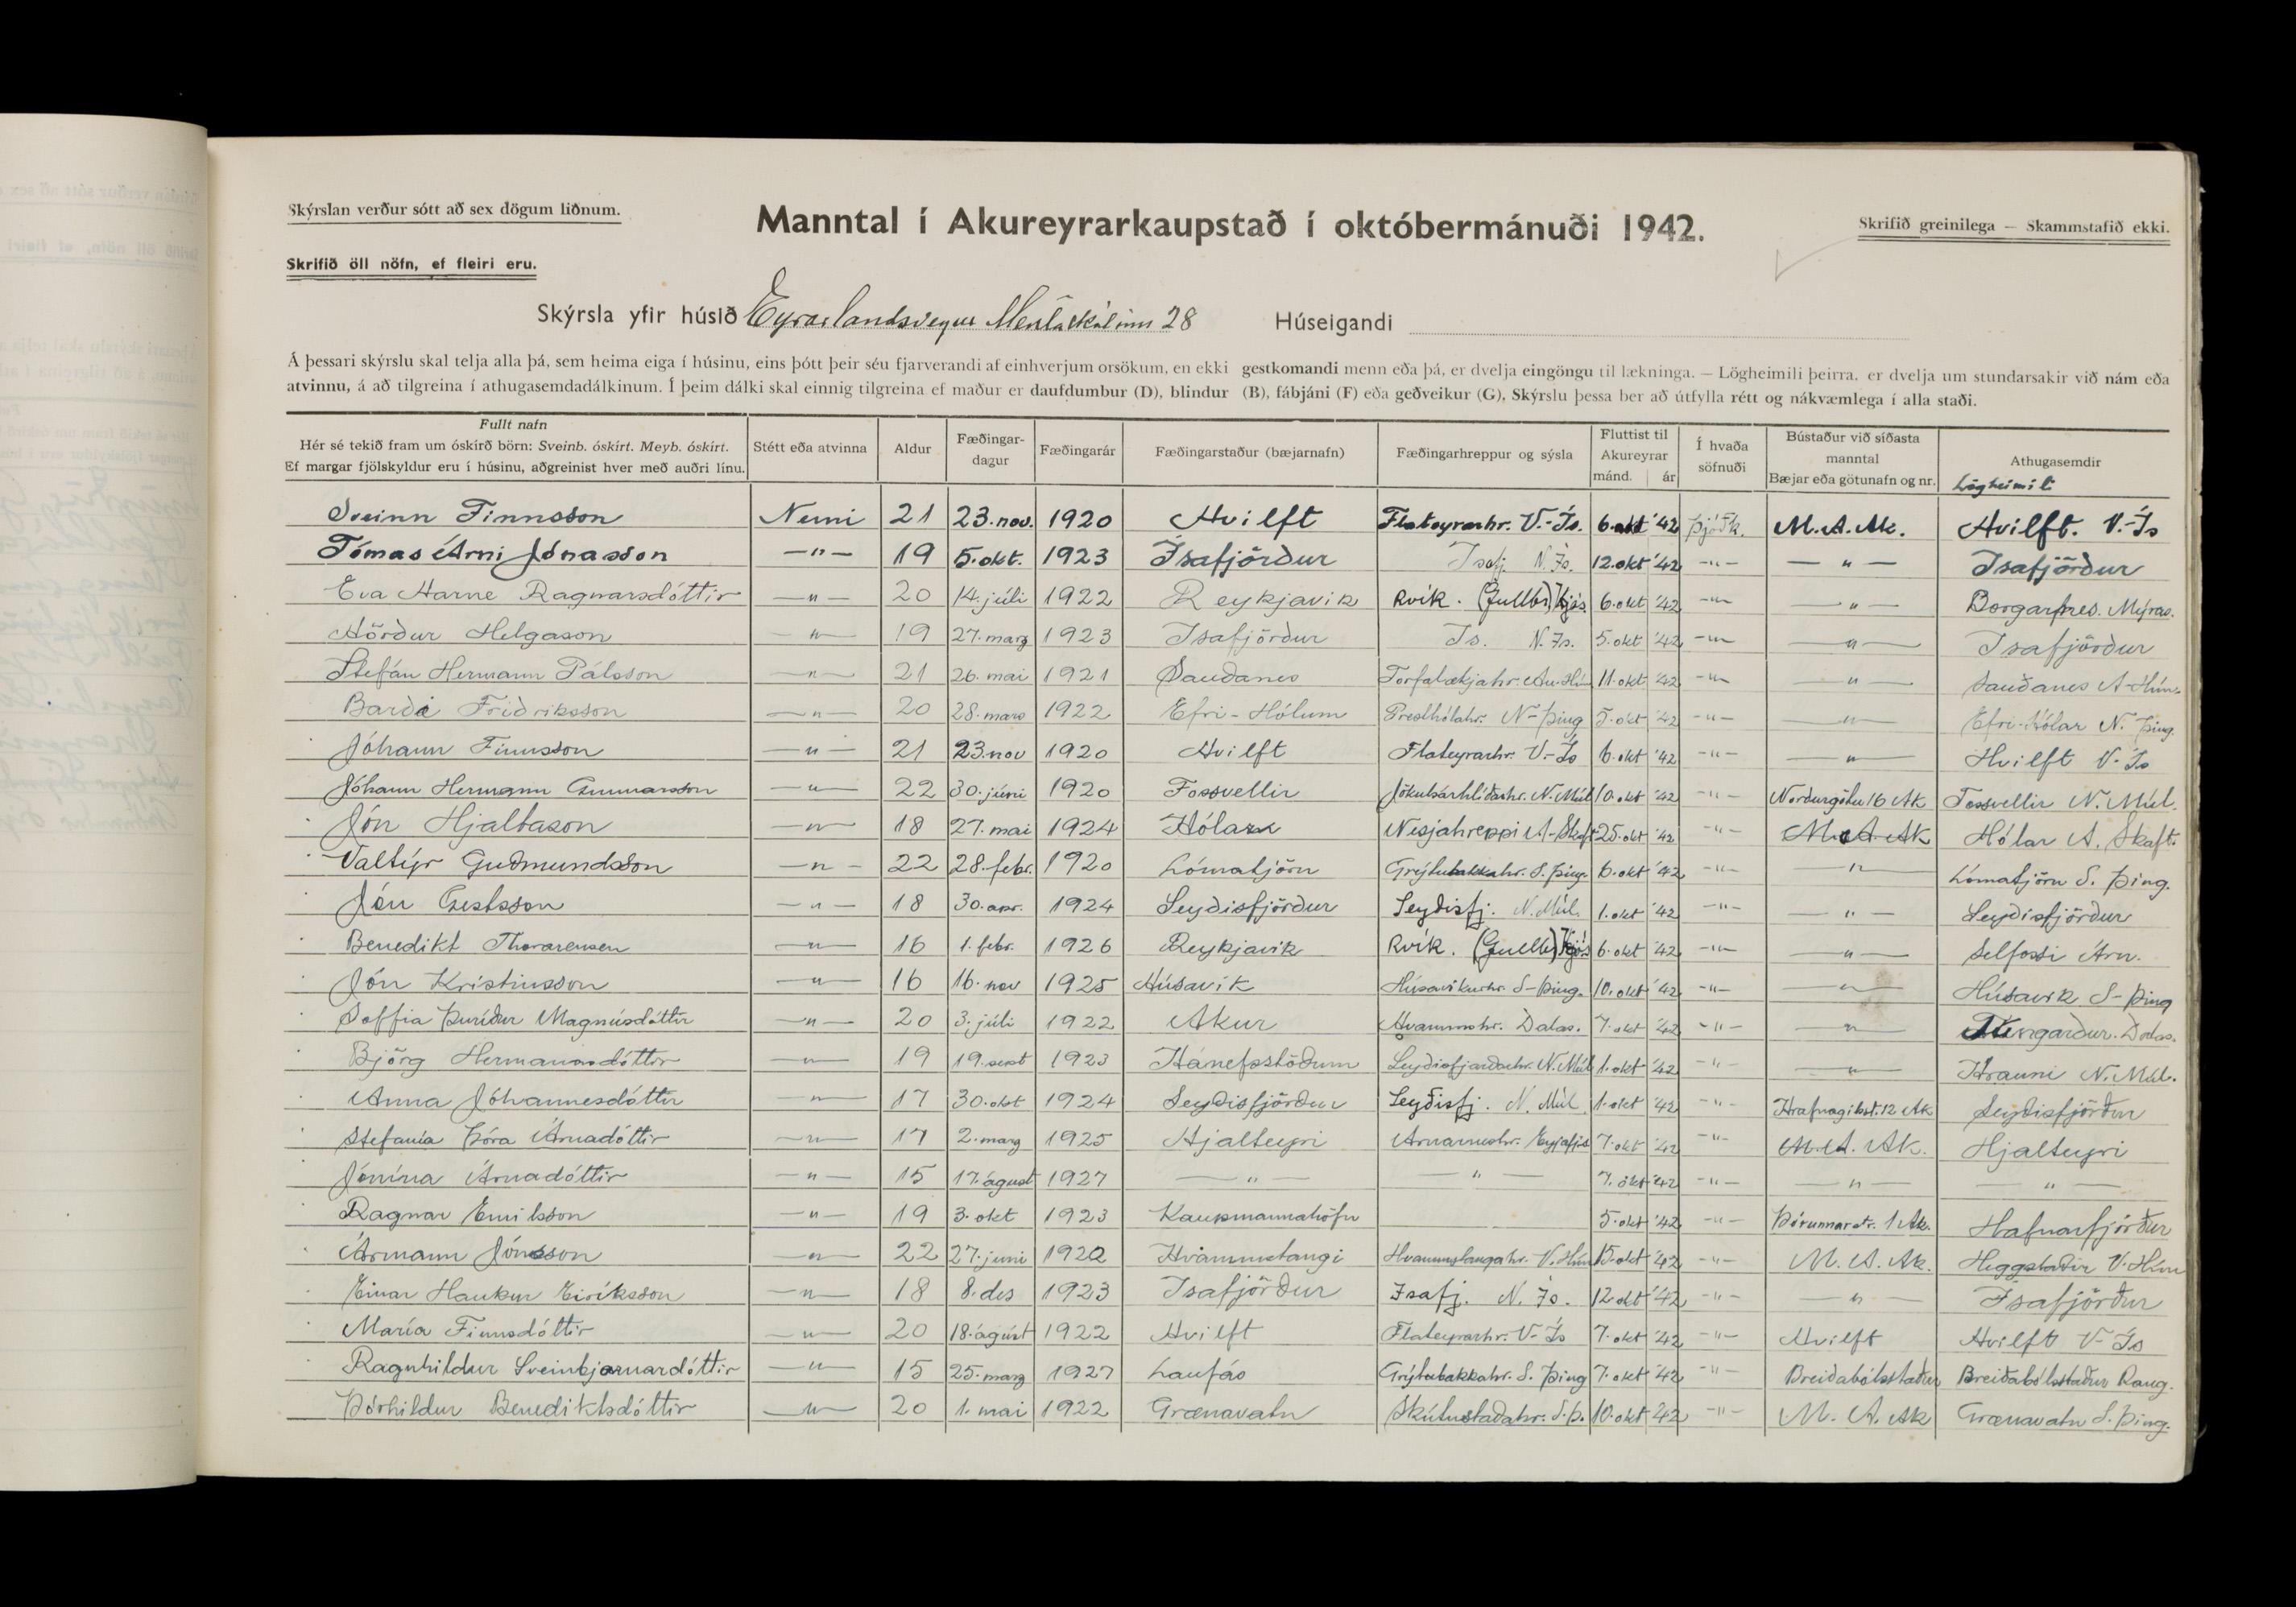 Skýrslan verður sótt að sex dögum liðnum.
Manntal í Akureyrarkaupstað í októbermánuði 1942.
Skrifið greinilega — Skammstafið ekki.
Skrifið öll nöfn, ef fleiri eru.
Skýrsla yfir húsið Eyrarlandsvegur Menntaskólinn 28 Húseigandi
Á þessari skýrslu skal telja alla þá, sem heima eiga í húsinu, eins þótt þeir séu fjarverandi af einhverjum orsökum, en ekki gestkomandi menn eða þá, er dvelja eingöngu til lækninga. — Lögheimili þeirra, er dvelja um stundarsakir við nám eða
atvinnu, á að tilgreina í athugasemdadálkinum. Í þeim dálki skal einnig tilgreina ef maður er daufdumbur (D), blindur (B), fábjáni (F) eða geðveikur (G), Skýrslu þessa ber að útfylla rétt og nákvæmlega í alla staði.
Fullt nafn Hér sé tekið fram um óskírð börn: Sveinb. óskírt. Meyb. óskírt. Ef margar fjölskyldur eru í húsinu, aðgreinist hver með auðri línu. Stétt eða atvinna Aldur Fæðingar-dagur Fæðingarár Fæðingarstaður (bæjarnafn) Fæðingarhreppur og sýsla Fluttist til Akureyrar mánd. ár Í hvaða söfnuði Bústaður við síðasta manntal Bæjar eða götunafn og nr. Athugasemdir Lögheimili
Sveinn Finnsson Nemi 21 23. nov. 1920 Hvilft Flateyrarhr. V.-Ís. 6. okt '42 Þjóðk. M.A. Ak. Hvilft. V.-Ís
Tómas Árni Jónasson —"— 19 5. okt. 1923 Ísafjörður Ísafj. N. Ís. 12. okt '42 —"— —"— Ísafjörður
Eva Harne Ragnarsdóttir —"— 20 14. júli 1922 Reykjavik Rvík. (Gullbr) Kjós 6. okt '42 —"— —"— Borgarnes. Mýras.
Hörður Helgason —"— 19 27. marz 1923 Isafjörður Ís. N. Ís. 5. okt '42 —"— —"— Isafjörður
Stefán Hermann Pálsson —"— 21 26. mai 1921 Sauðanes Torfalækjahr. Au-Hún 11. okt '42 —"— —"— Sauðanes A-Hún.
Barði Friðriksson —"— 20 28. mars 1922 Efri-Hólum Presthólahr. N-Þing 5. okt '42 —"— —"— Efri-Hólar N. Þing.
Jóhann Finnsson —"— 21 23. nov 1920 Hvilft Flateyrarhr. V.-Ís 6. okt '42 —"— —"— Hvilft V-Ís
Jóhann Hermann Gunnarsson —"— 22 30. júni 1920 Fossvellir Jökulsárhlíðarhr. N. Múl 10. okt '42 —"— Norðurgötu 16 Ak Fossvellir N. Múl.
Jón Hjaltason —"— 18 27. mai 1924 Hólar Nesjahreppi A-Skaft 25. okt '42 —"— M.A. Ak Hólar A. Skaft.
Valtýr Guðmundsson —"— 22 28. febr. 1920 Lómatjörn Grýtubakkahr. S. Þing. 6. okt '42 —"— —"— Lómatjörn S. Þing.
Jón Gestsson —"— 18 30. apr. 1924 Seyðisfjörður Seyðisfj. N. Múl. 1. okt '42 —"— —"— Seyðisfjörður
Benedikt Thorarensen —"— 16 1. febr. 1926 Reykjavík Rvík. (Gullbr) Kjós 6. okt '42 —"— —"— Selfossi Árn.
Jón Kristinsson —"— 16 16. nov 1925 Húsavík Húsavikurhr. S-Þing. 10. okt '42 —"— —"— Húsavík S-Þing
Soffia Þuríður Magnúsdóttir —"— 20 3. júli 1922 Akur Hvammshr. Dalas. 7. okt '42 —"— —"— Túngarður. Dalas.
Björg Hermannsdóttir —"— 19 19. sept 1923 Hánefsstöðum Seyðisfjarðarhr. N. Múl 1. okt '42 —"— —"— Hrauni N. Múl.
Anna Jóhannesdóttir —"— 17 30. okt 1924 Seyðisfjörður Seyðisfj. N. Múl 1. okt '42 —"— Hrafnagilsst. 12 Ak Seyðisfjörður
Stefanía Þóra Árnadóttir —"— 17 2. marz 1925 Hjalteyri Arnarneshr. Eyjafjs 7. okt '42 —"— M.A. Ak. Hjalteyri
Jónína Árnadóttir —"— 15 17. ágúst 1927 —"— —"— 7. okt '42 —"— —"— —"—
Ragnar Emilsson —"— 19 3. okt 1923 Kaupmannahöfn 5. okt '42 —"— Þórunnarstr. 1 Ak. Hafnarfjörður
Ármann Jónsson —"— 22 27. juni 1920 Hvammstangi Hvammstangahr. V. Hún 15. okt '42 —"— M.A. Ak. Heggstaðir V-Hún
Einar Haukur Eiríksson —"— 18 8. des 1923 Isafjörður Ísafj. N. Ís. 12. okt '42 —"— —"— Ísafjörður
María Finnsdóttir —"— 20 18. ágúst 1922 Hvilft Flateyrarhr. V-Ís 7. okt '42 —"— Hvilft Hvilft V-Ís
Ragnhildur Sveinbjarnardóttir —"— 15 25. marz 1927 Laufás Grýtubakkahr. S. Þing 7. okt '42 —"— Breiðabólsstaður Breiðabólsstaður Rang.
Þórhildur Benediktsdóttir —"— 20 1. mai 1922 Grænavatn Skútustaðahr. S.Þ. 10. okt '42 —"— M.A. Ak Grænavatn S. Þing.